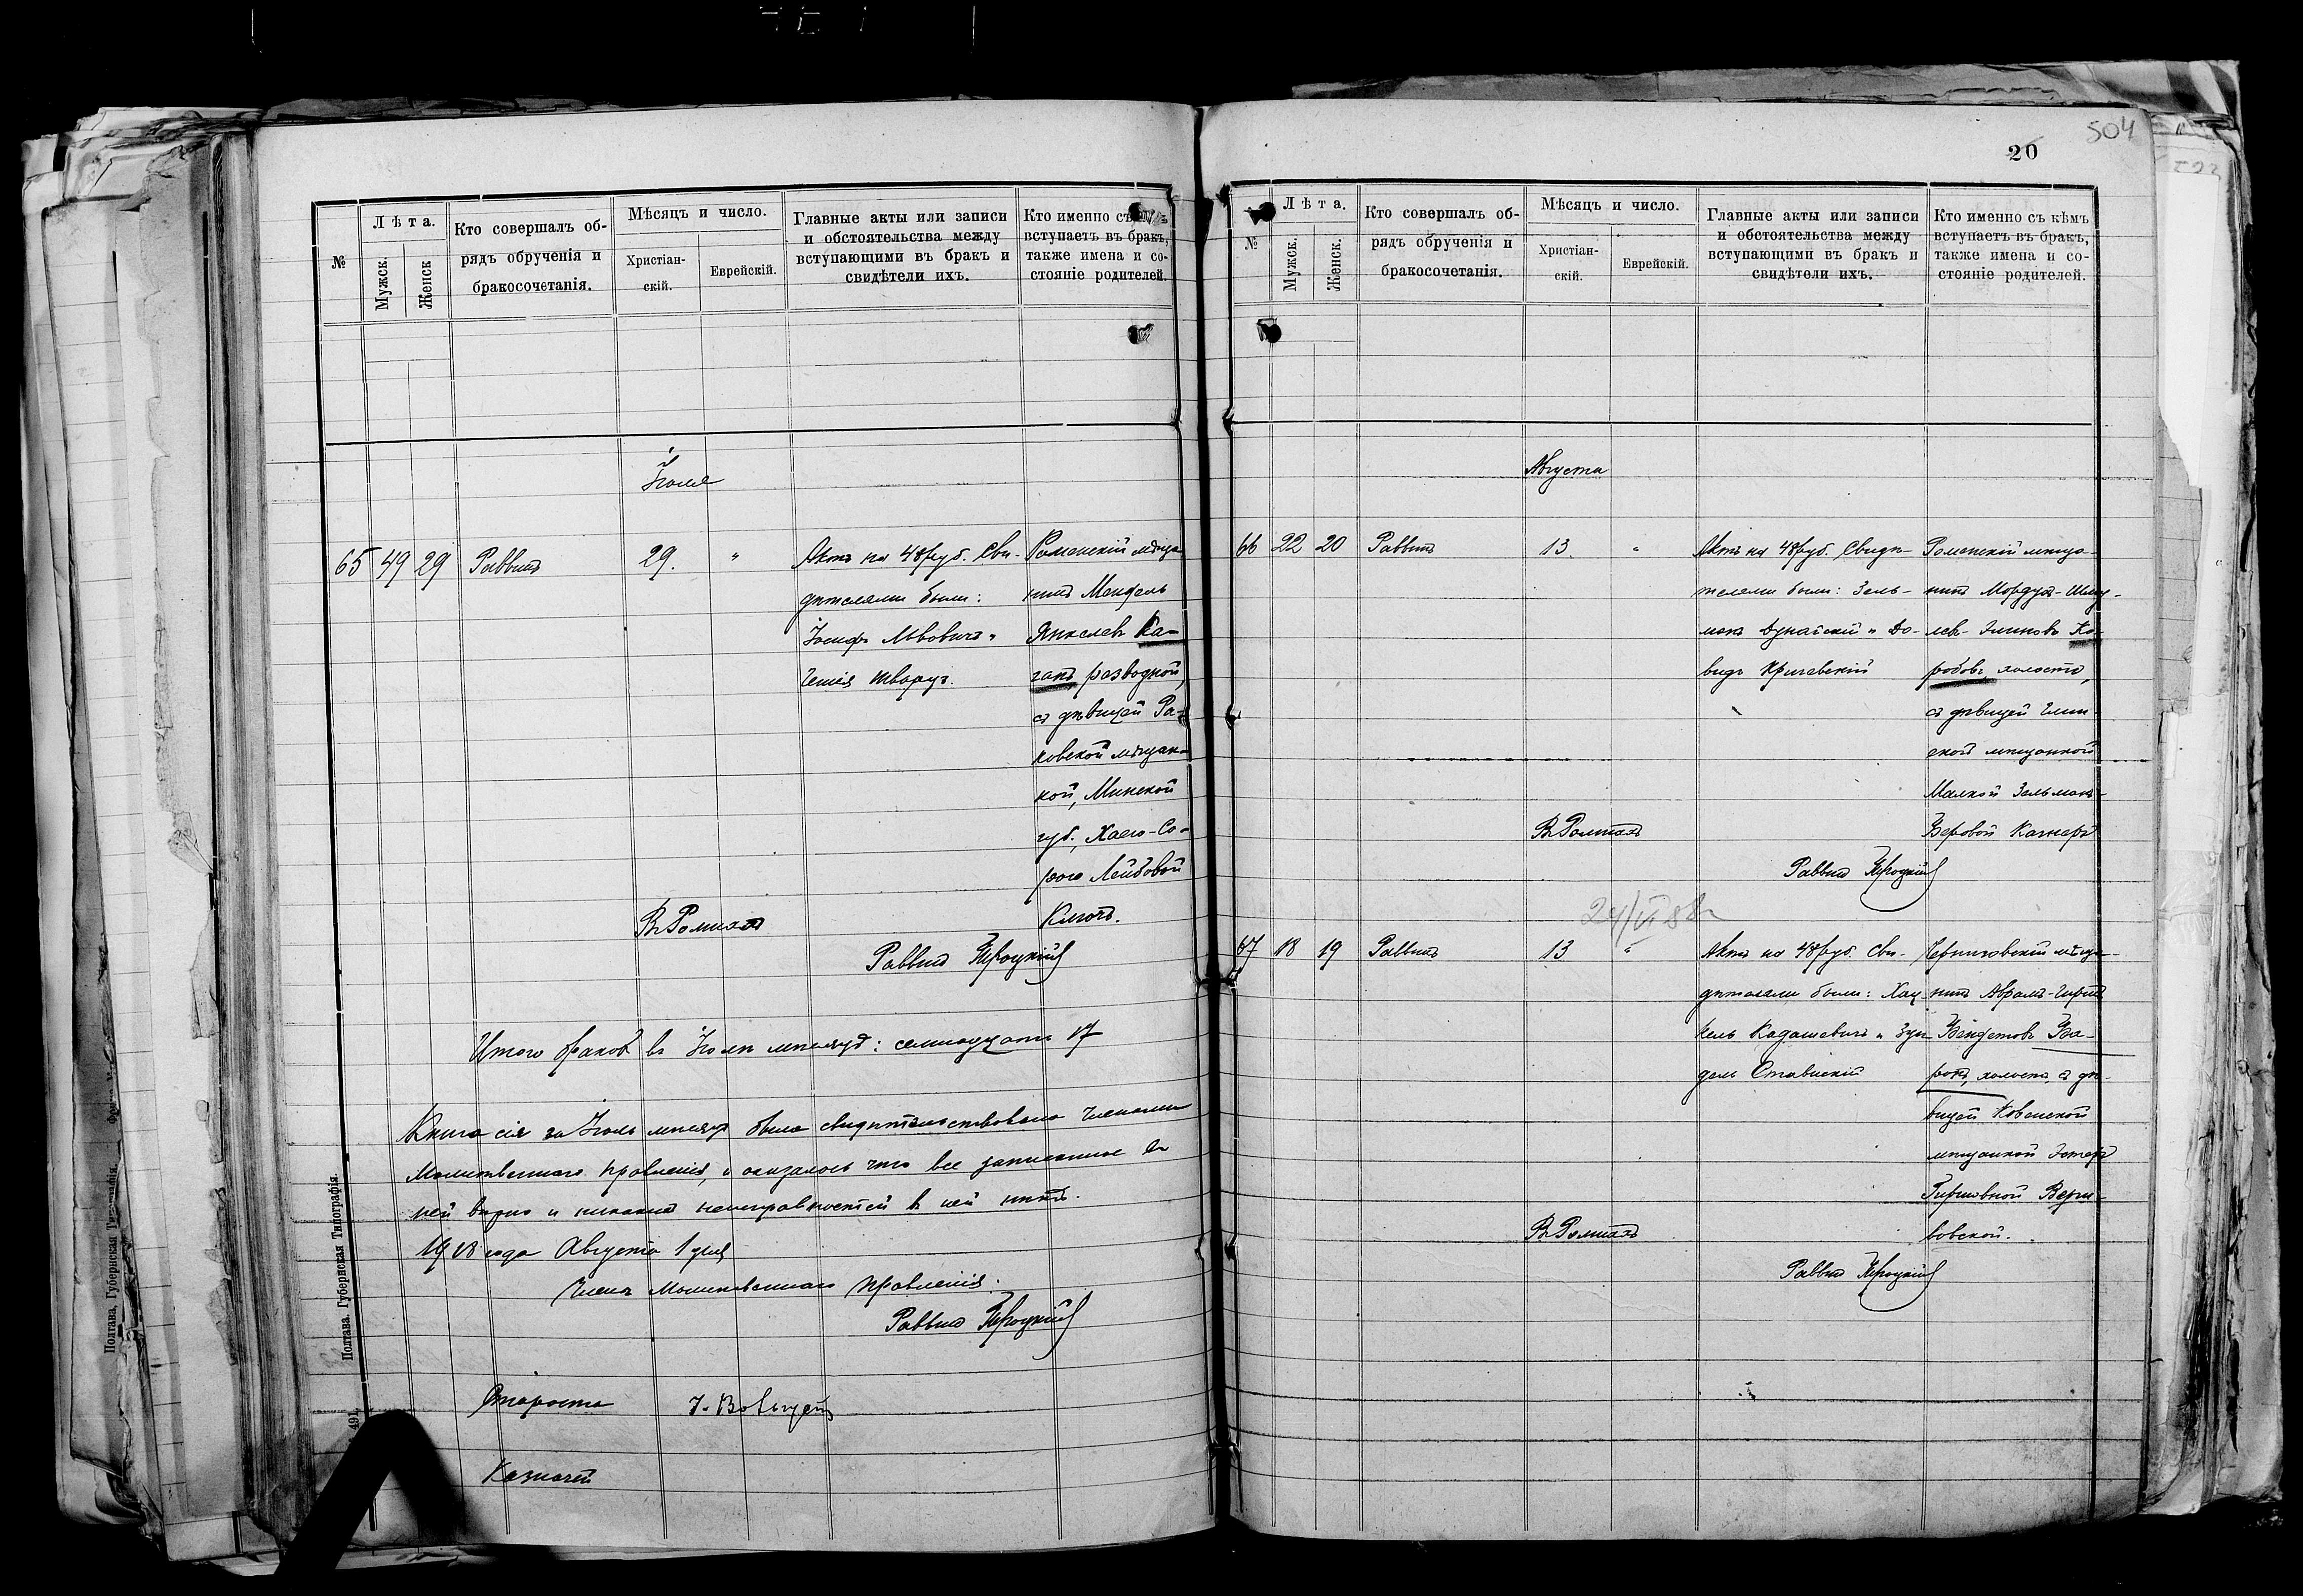 504
20
№
Лѣта.
Мужск.
Женск
Кто совершалъ об-
рядъ обрученія и
бракосочетанія.
Мѣсяцъ и число.
Христіан-
скій.
Еврейскій.
Главные акты или записи
и обстоятельства между
вступающими въ бракъ и
свидѣтели ихъ.
Кто именно съ
вступаетъ въ бракъ,
также имена и со-
стояніе родителей.
Іюля
65 49 29 Раввинъ 29. "
Актъ на 48 руб. Сви-
дѣтелями были:
Іосифъ Львовичъ и
Шварц.
Роменскій мѣща-
нинъ Мендель
Янкелевъ Ка-
ганъ, разводной,
съ дѣвицей Ра-
ковской мѣщан-
кой, Минской
губ., Хаею-Со-
рою Лейбовой
Ключъ.
Въ Ромнахъ
Раввинъ
Итого браковъ въ Іюлѣ мѣсяцѣ: семнадцать 17
Книга сія за Іюль мѣсяцъ была свидѣтельствована Членами
Молитвеннаго правленія, и оказалось что все записанное въ
ней вѣрно и никакихъ неисправностей въ ней нѣтъ.
1918 года Августа 1 дня
Члены Молитвеннаго правленія.
Раввинъ
Староста
Казначей
Полтава. Губернская Типографія.
Полтава, Губернская Типографія
491
№
Лѣта.
Мужск.
Женск.
Кто совершалъ об-
рядъ обрученія и
бракосочетанія.
Мѣсяцъ и число.
Христіан-
скій.
Еврейскій.
Главные акты или записи
и обстоятельства между
вступающими въ бракъ и
свидѣтели ихъ.
Кто именно съ кѣмъ
вступаетъ въ бракъ,
также имена и со-
стояніе родителей.
Августа
66 22 20 Раввинъ 13. "
Актъ на 48 руб. Свидѣ-
телями были: Зель-
манъ Дунайскій и До-
видъ Кричевскій
Роменскій мѣща-
нинъ Мордухъ-Шму-
левъ Ко-
робовъ, холостъ,
съ дѣвицей Глин-
ской мѣщанкой
Малкой Зельманъ-
Беровой
Въ Ромнахъ
Раввинъ
24/VI 88г
67 18 19 Раввинъ 13 "
Актъ на 48 руб. Сви-
дѣтелями были: Хац-
кель Кадашевичъ и Зун-
дель Ставискій
Черниговскій мѣща-
нинъ Абрамъ-Гиршъ
Ба-
ронъ, холостъ, съ дѣ-
вицей Ковенской
мѣщанкой Эстеръ
Гиршовной Верш-
бовской.
Въ Ромнахъ
Раввинъ